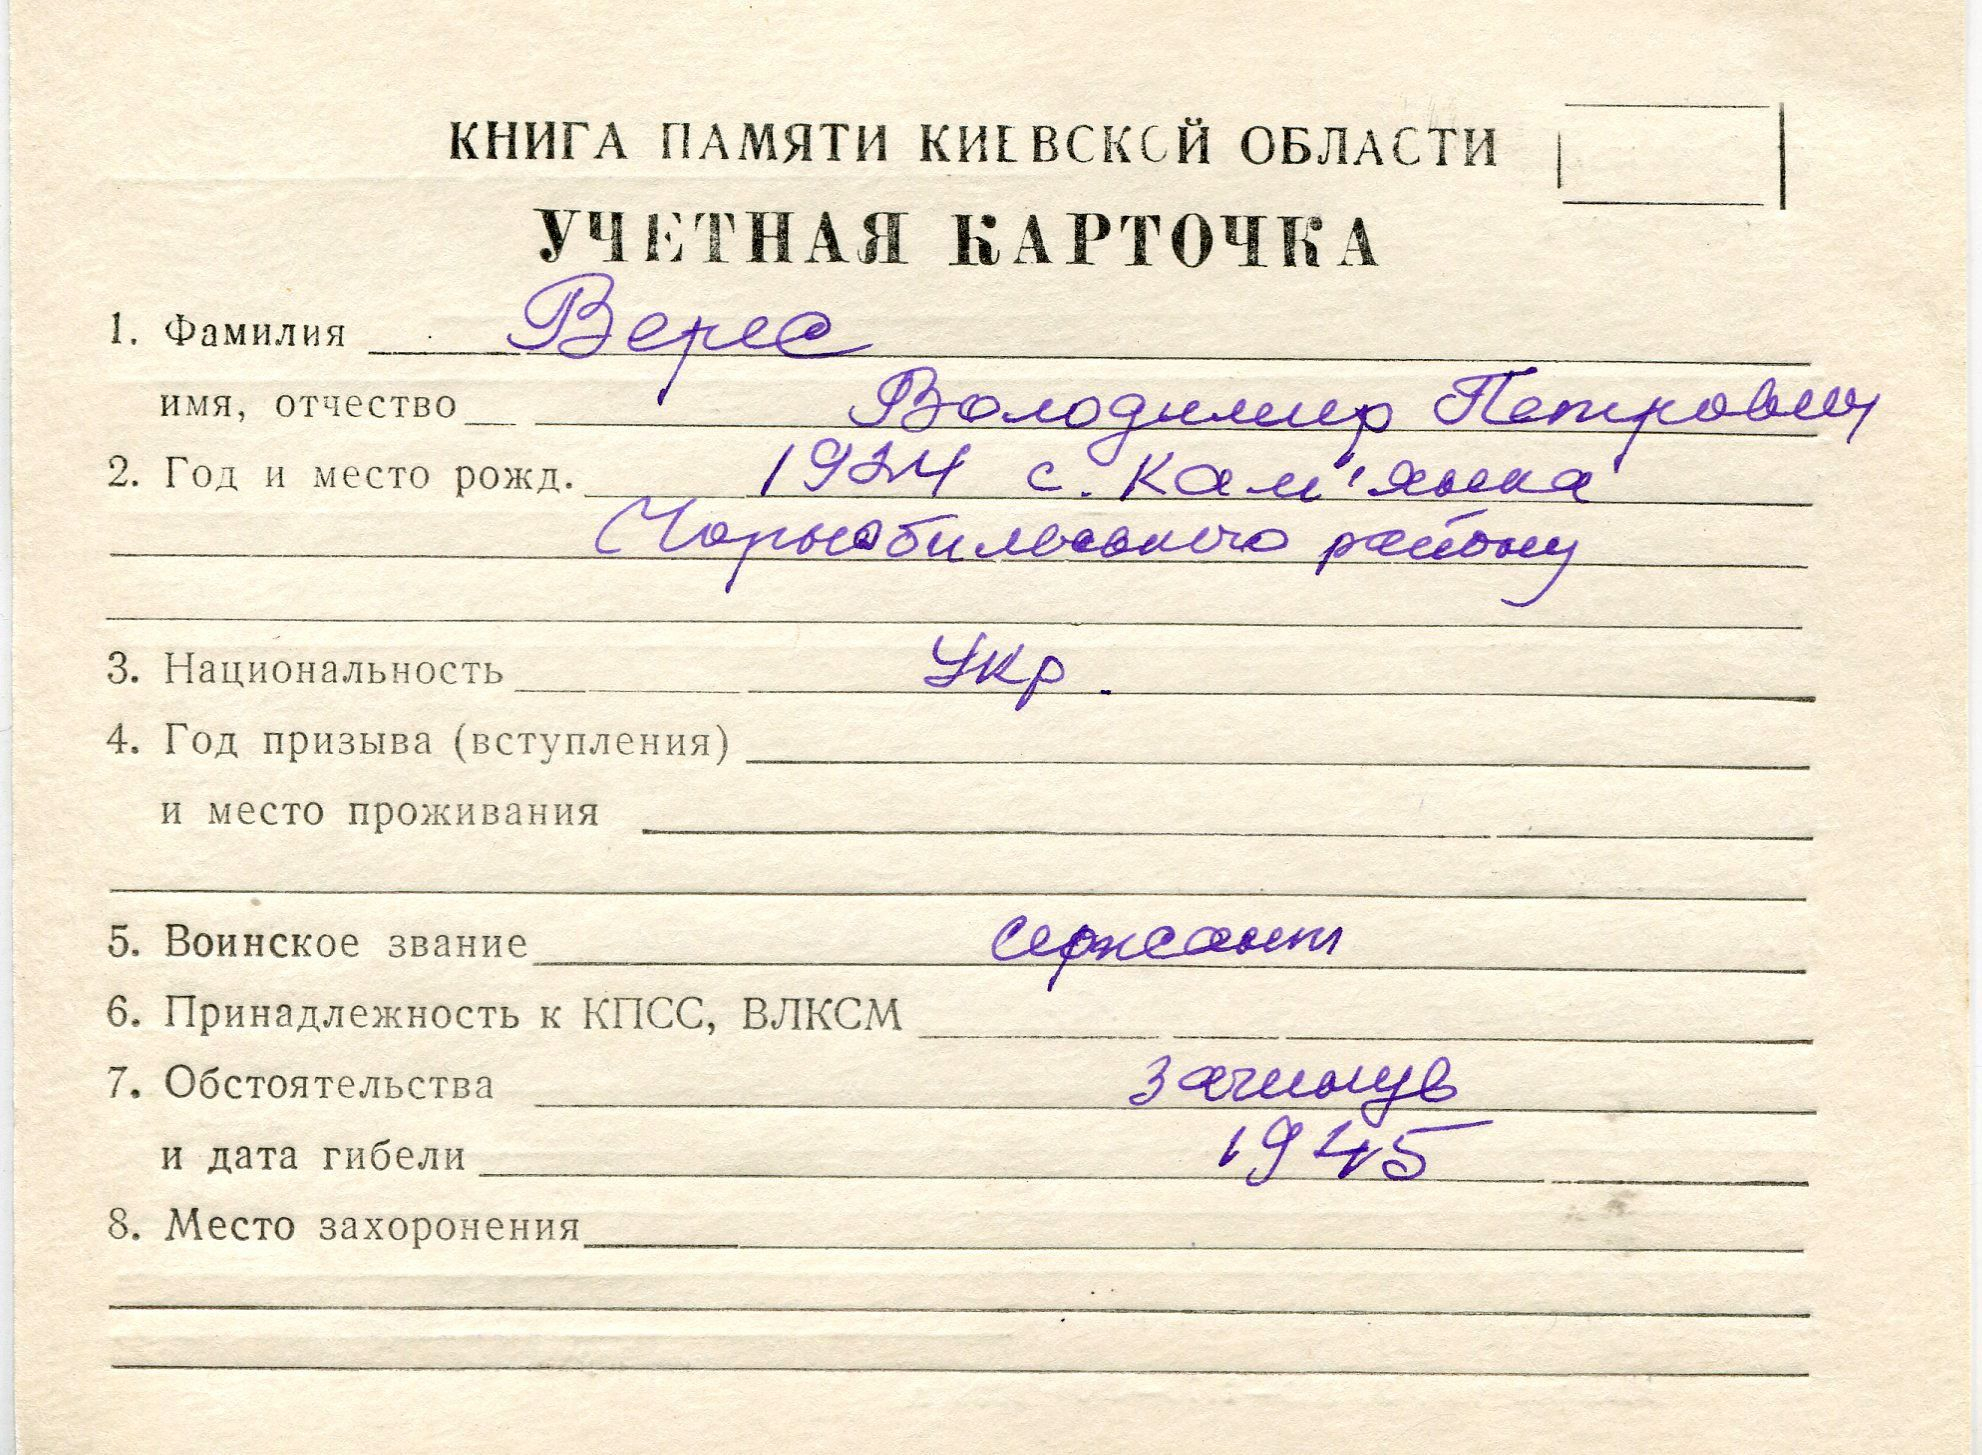 КНИГА ПАМЯТИ КИЕВСКОЙ ОБЛАСТИ
УЧЕТНАЯ КАРТОЧКА
1. Фамилия Верес
имя, отчество Володимир Петрович
2. Год и место рожд. 1924 с. Кам'янка
Чорнобильського району
3. Национальность Укр.
4. Год призыва (вступления)
и место проживания
5. Воинское звание сержант
6. Принадлежность к КПСС, ВЛКСМ
7. Обстоятельства загинув
и дата гибели 1945
8. Место захоронения